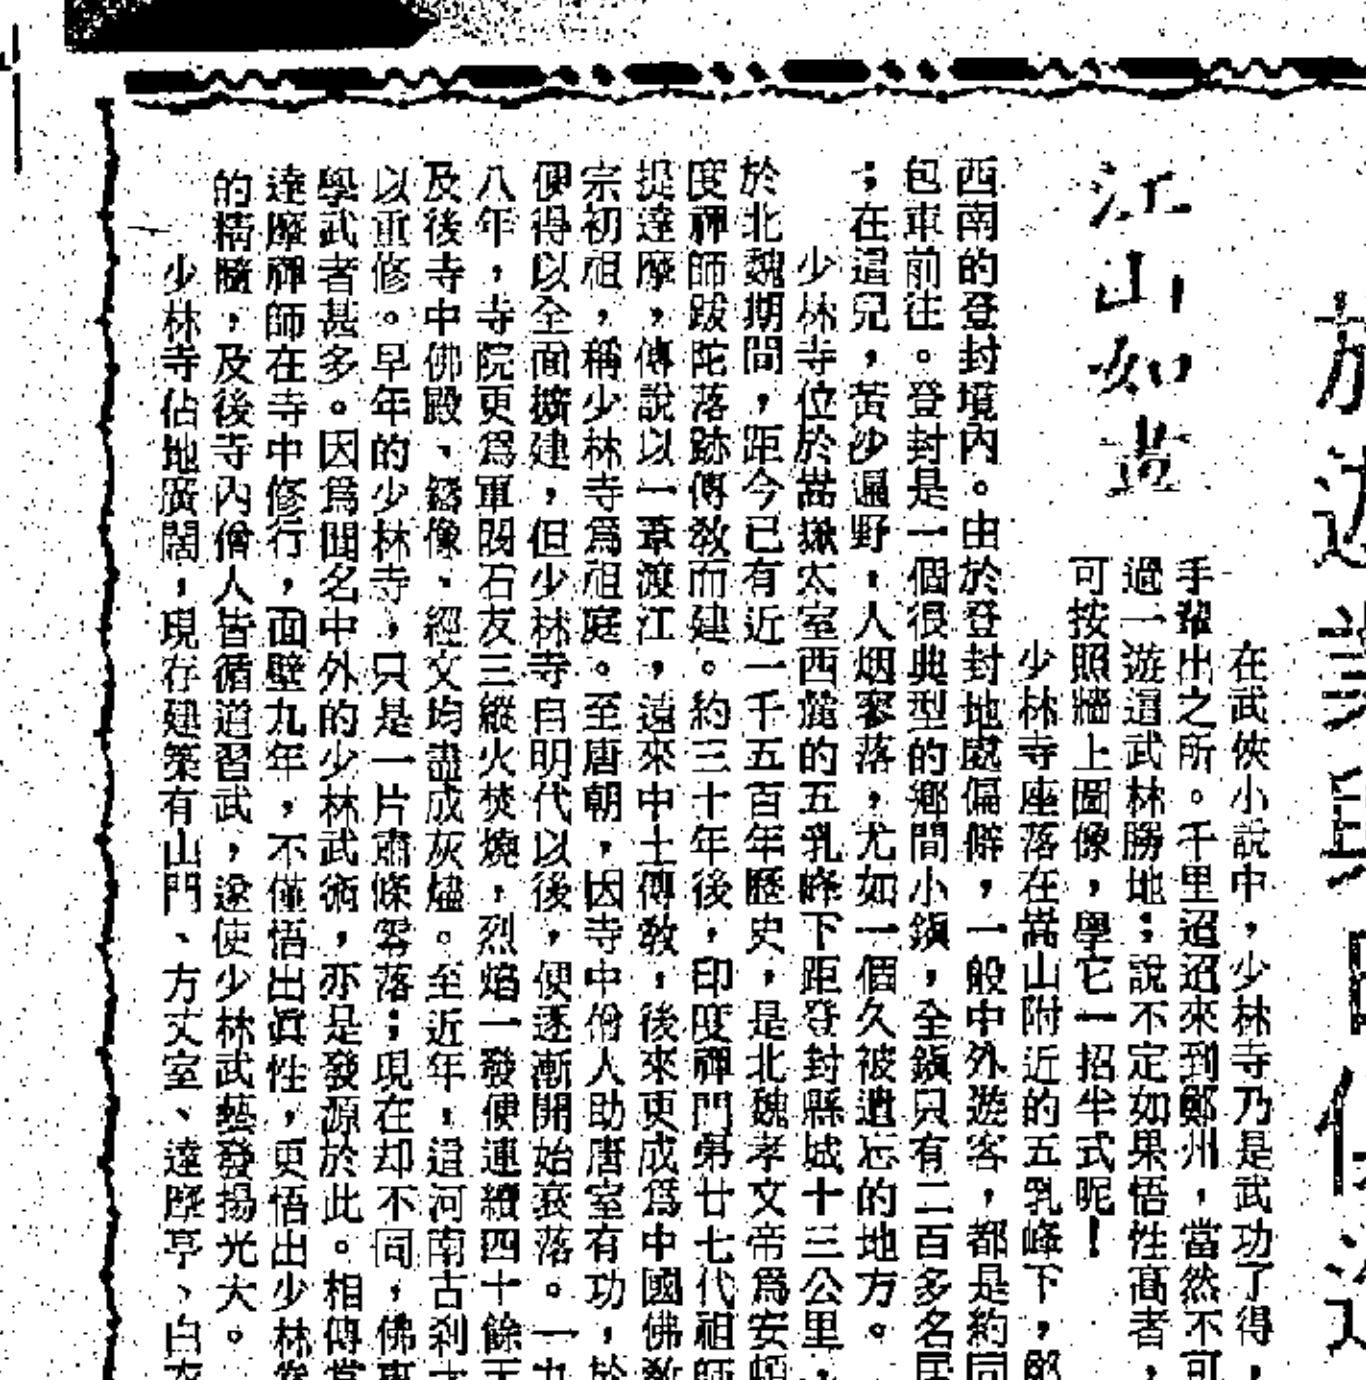 江山如畫
在武俠小說中，少林寺乃是武功了得，
手輩出之所。千里迢迢來到鄭州，當然不可
過一游這武林勝地；說不定如果悟性高者，
可按照牆上圖像，學它一招半式呢！
少林寺座落在嵩山附近的五乳峰下，鄭
西南的登封境內。由於登封地處偏僻，一般中外遊客，都是約同
包車前往。登封是一個很典型的鄉間小鎮，全鎮只有二百多名居
；在這兒，黃沙遍野，人烟寥落，尤如一個久被遺忘的地方。
少林寺位於嵩嶽太室西麓的五乳峰下距登封縣城十三公里，
於北魏期間，距今已有近一千五百年歷史，是北魏孝文帝爲安頓
度禪師跋陀落跡傳敎而建。約三十年後，印度禪門第廿七代祖師
提達摩，傳說以一葦渡江，遠來中土傳敎，後來更成爲中國佛敎
宗初祖，稱少林寺爲祖庭。至唐朝，因寺中僧人助唐室有功，於
便得以全面擴建，但少林寺自明代以後，便逐漸開始衰落。一九
八年，寺院更爲軍閥石友三縱火焚燒，烈焰一發便連續四十餘天
及後寺中佛殿、鑄像、經文均盡成灰燼。至近年，這河南古剎
以重修。早年的少林寺，只是一片肅條零落；現在却不同，佛
學武者甚多。因爲聞名中外的少林武術，亦是發源於此。相傳當
達摩禪師在寺中修行，面壁九年，不僅悟出眞性，更悟出少林
的精髓，及後寺內僧人皆循道習武，遂使少林武藝發揚光大。
少林寺佔地廣闊，現存建築有山門、方丈室、達摩亭、白衣